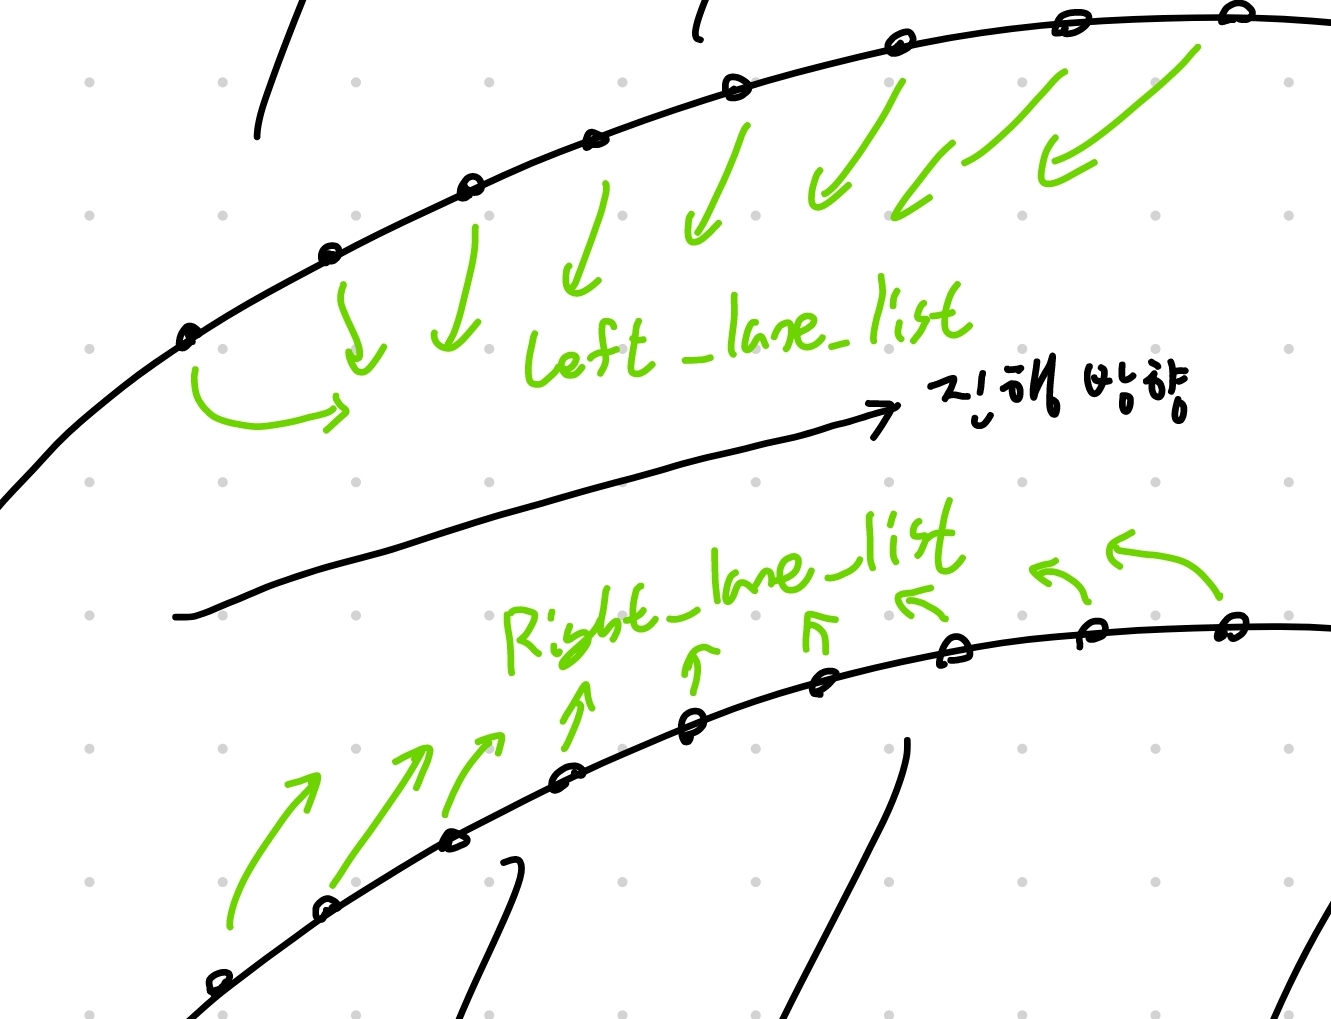 Left_lane_list
진행 방향
Right_lane_list